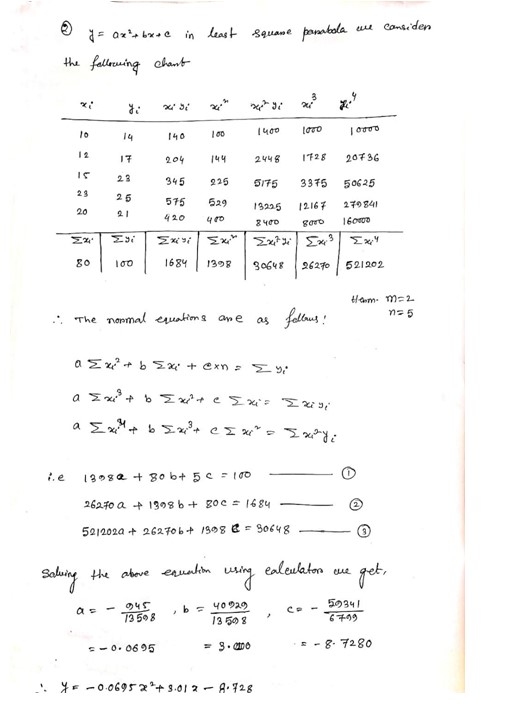 ② y = ax²+bx+c in least square parabola we consider
the following chart
xi yi xi yi xi² xi² yi xi³ xi⁴
10 14 140 100 1400 1000 10000
12 17 204 144 2448 1728 20736
15 23 345 225 5175 3375 50625
23 25 575 529 13225 12167 279841
20 21 420 400 8400 8000 160000
Σxi Σyi Σxi yi Σxi² Σxi² yi Σxi³ Σxi⁴
80 100 1684 1398 30648 26270 521202
Here m=2
n=5
∴ The normal equations are as follows:
a Σxi² + b Σxi + c×n = Σyi
a Σxi³ + b Σxi² + c Σxi = Σxi yi
a Σxi⁴ + b Σxi³ + c Σxi² = Σxi² yi
i.e 1398a + 80b + 5c = 100 ——— ①
26270a + 1398b + 80c = 1684 ——— ②
521202a + 26270b + 1398c = 30648 ——— ③
Solving the above equation using calculator we get,
a = - 945/13598 , b = 40929/13598 , c = - 59341/6799
= -0.0695 = 3.0100 = -8.7280
∴ y = -0.0695x² + 3.01x - 8.728